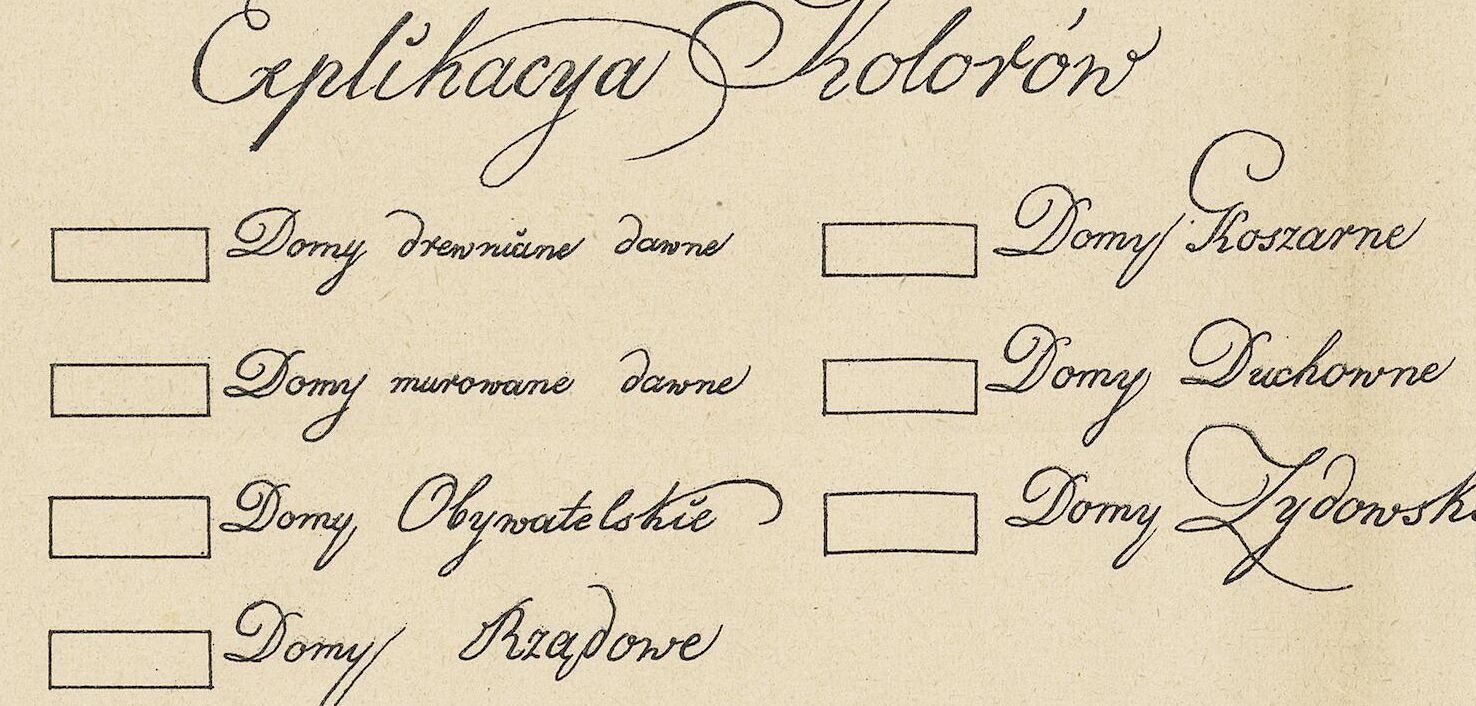 Explikacya Kolorów
Domy drewniane dawne
Domy murowane dawne
Domy Obywatelskie
Domy Rządowe
Domy Koszarne
Domy Duchowne
Domy Zydowsk